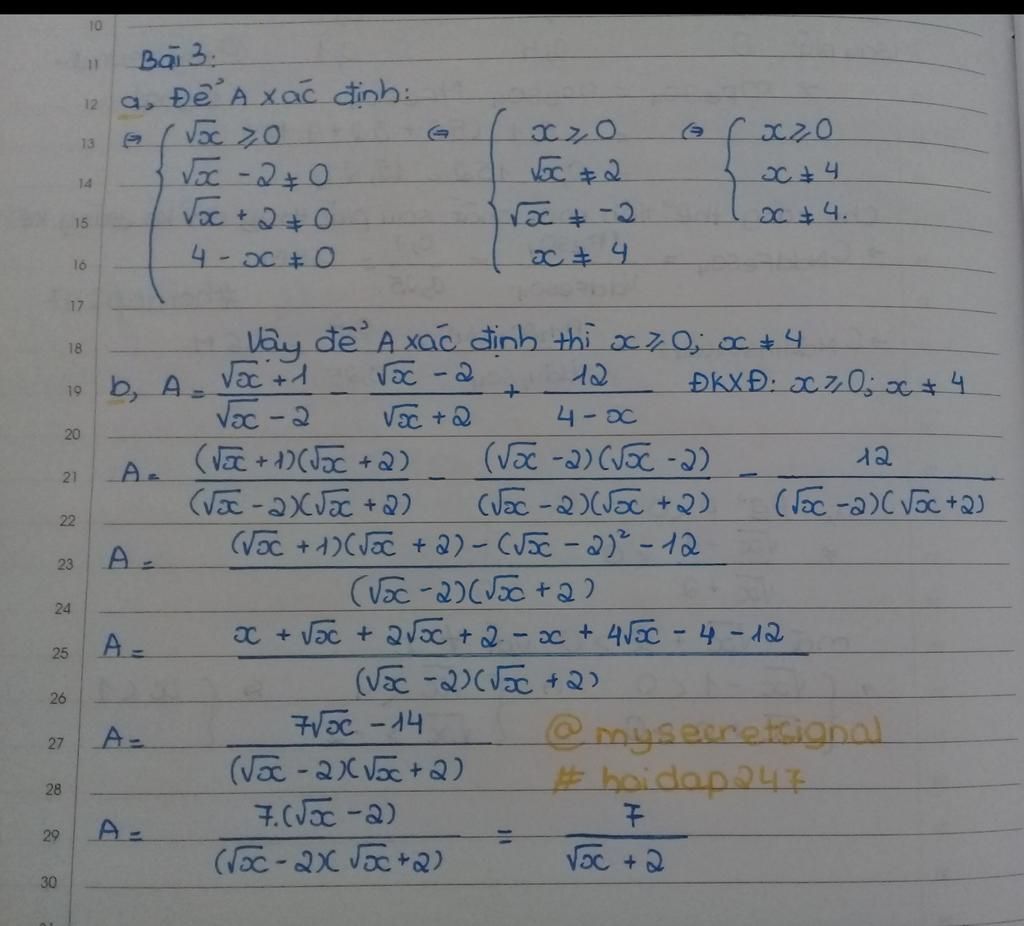 10
11 Bài 3:
12 a, Để A xác định:
13 ⇔ { √x ≥ 0 ⇔ { x ≥ 0 ⇔ { x ≥ 0
14 √x - 2 ≠ 0 √x ≠ 2 x ≠ 4
15 √x + 2 ≠ 0 √x ≠ -2 x ≠ 4.
16 4 - x ≠ 0 x ≠ 4
17
18 Vậy để A xác định thì x ≥ 0; x ≠ 4
19 b, A = (√x + 1)/(√x - 2) - (√x - 2)/(√x + 2) + 12/(4 - x) ĐKXĐ: x ≥ 0; x ≠ 4
20
21 A = ((√x + 1)(√x + 2))/((√x - 2)(√x + 2)) - ((√x - 2)(√x - 2))/((√x - 2)(√x + 2)) - 12/((√x - 2)(√x + 2))
22
23 A = ((√x + 1)(√x + 2) - (√x - 2)² - 12)/((√x - 2)(√x + 2))
24
25 A = (x + √x + 2√x + 2 - x + 4√x - 4 - 12)/((√x - 2)(√x + 2))
26
27 A = (7√x - 14)/((√x - 2)(√x + 2)) @mysecretsignal
28 # hoidap247
29 A = (7.(√x - 2))/((√x - 2)(√x + 2)) = 7/(√x + 2)
30